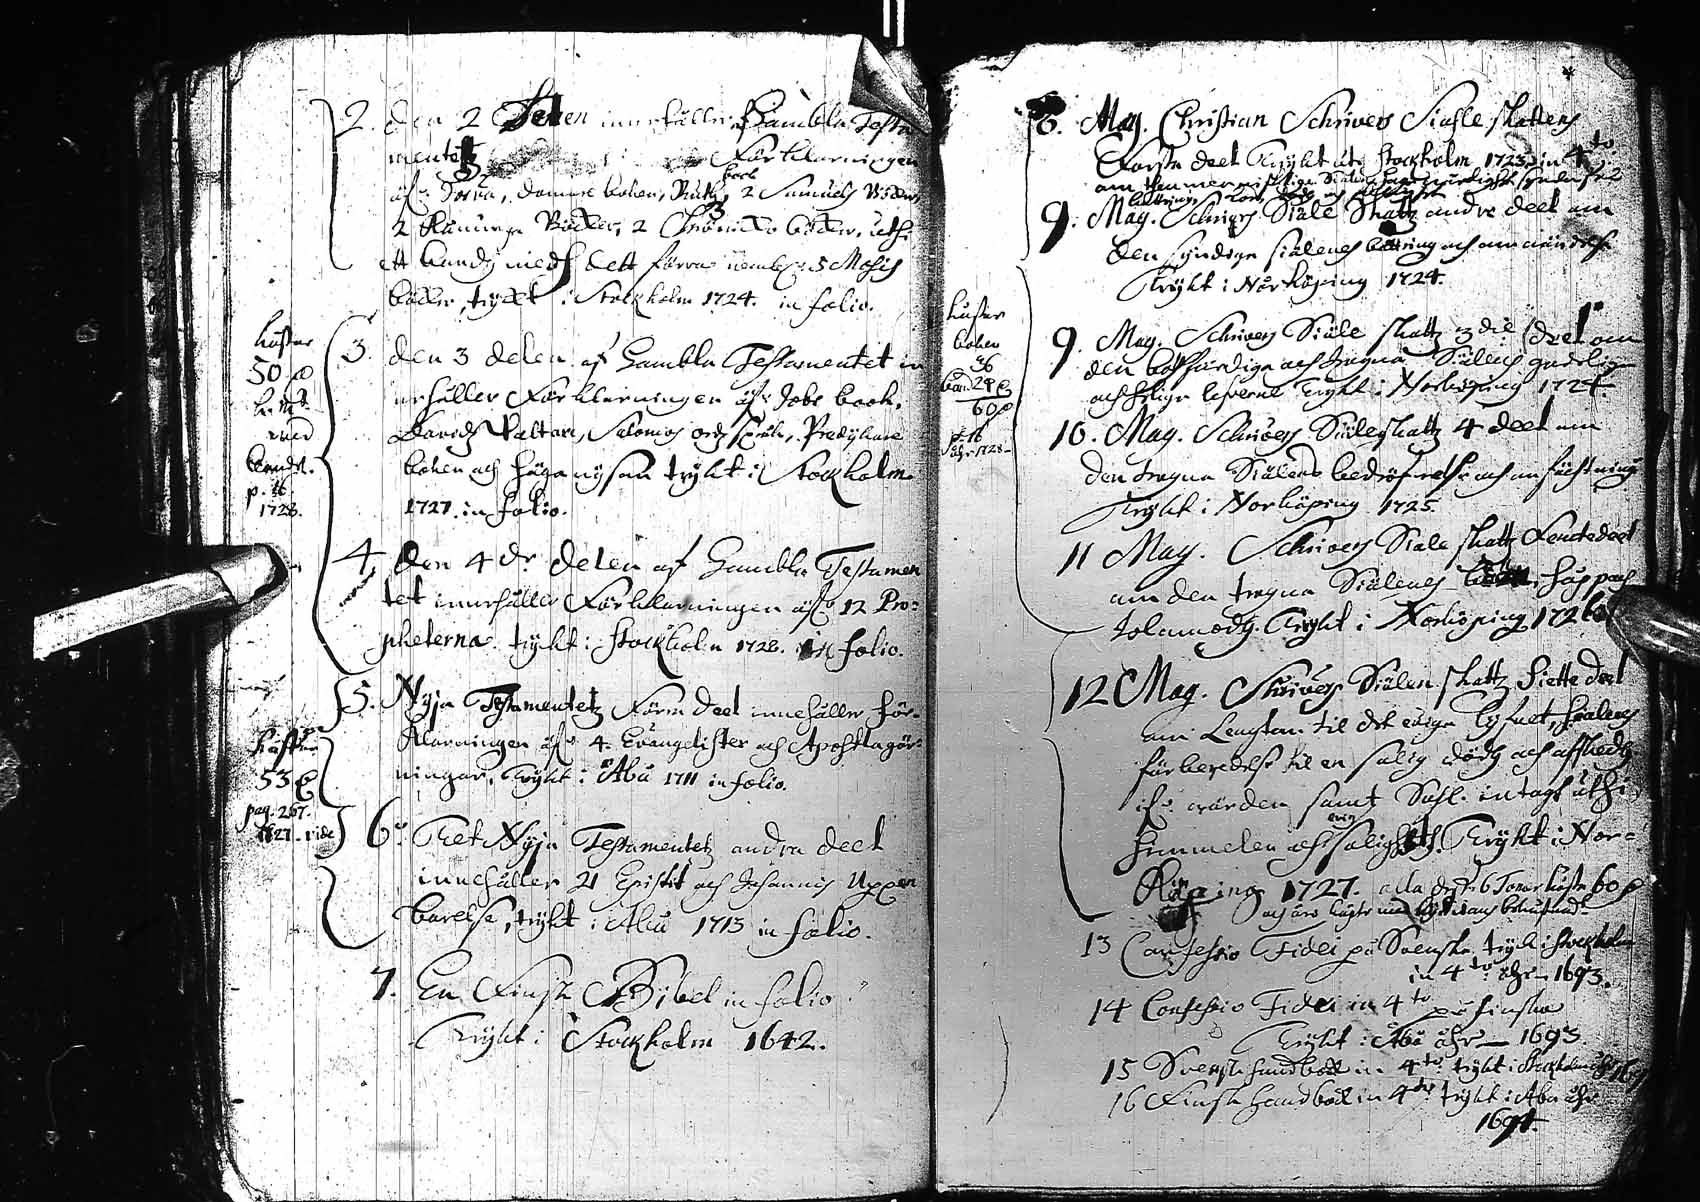 2. den 2 Delen innehåller Gambla Testa
mentetz Förklarningen
öfr: Josua, Domare boken, Ruths book 2 Samuels Böcker,
2 Konunga Böcker, 2 Chrönicko böcker, uthi
ett band med dett förra nembl: 5 Mosis
böcker, tryckt i Stockholm 1724. in folio.
kåstar
50
med
bandt.
p. 16
1728.
3. den 3 delen af Gambla Testamentet in
nehåller Förklarningen öfr Jobs book,
Davids Psaltare, Salomos ordspråk, Predikare
boken och höga wysan trykt i Stockholm
1727. in folio.
4. den 4de delen af Gambla Testamen
tet innehåller Förklarningen öfr 12 Pro=
pheterna. tryckt i Stockholm 1728. in folio.
5. Nyja Testamentetz Förra deel innehåller för-
klarningen öfr 4. Evangelister och Apostlagär-
ningar, Trykt i Åbo 1711 in folio.
kåstar
53
pag. 267.
1727. vide
6. Thet Nyja Testamentetz andra deel
innehåller 21 Epistl och Johannis Uppen
barelse, trykt i Åbo 1713 in folio.
7. En Finsk Bibel in folio
Trykt i Stockholm 1642.
8. Mag. Christian Schrivers Siäleskattens
Förste deel Trykt uti Stockholm 1723. in 4to
9. Mag. Schrivers Siäle Skatz andre deel om
den syndiga siälenes bättring och omwändelse
Trykt i Norköping 1724.
kåstar
boken
36
band 24
60
p. 16
åhr 1728
9. Mag. Schrivers Siäle skattz 3die deel om
den botfärdiga och trogna Siälens gudelige
och helige lefverne Trykt i Norköping 1724.
10. Mag. Schrivers Siäleskattz 4 deel om
den trogna Siälens bedröfwelse och anfächtning
Trykt i Norköping 1725.
11 Mag. Schrivers Siäle skattz Femte deel
om den trogna Siälenes hopp och
tolamodg. Trykt i Norköping 1726
12 Mag. Schrivers Siälen skattz Siette deel
om Lengtan til det ewiga lyfwet, siälens
förberedelse til en salig död och afsked
if: wärden samt Sahl. intogh uthi
himmelen och ewig salighet. Trykt i Nor=
köping 1727. alla desse 6 Tomer kåsta 60
13 Confessio Fidei på Svenska tryck i Stockholm
in 4to åhr 1693.
14 Confessio Fidei in 4to på finska
Trykt i Åbo åhr — 1693.
15 Svensk handbok in 4to trykt i Stockholm åhr
16 Finsk handbok in 4to trykt i Åbo åhr
1694.